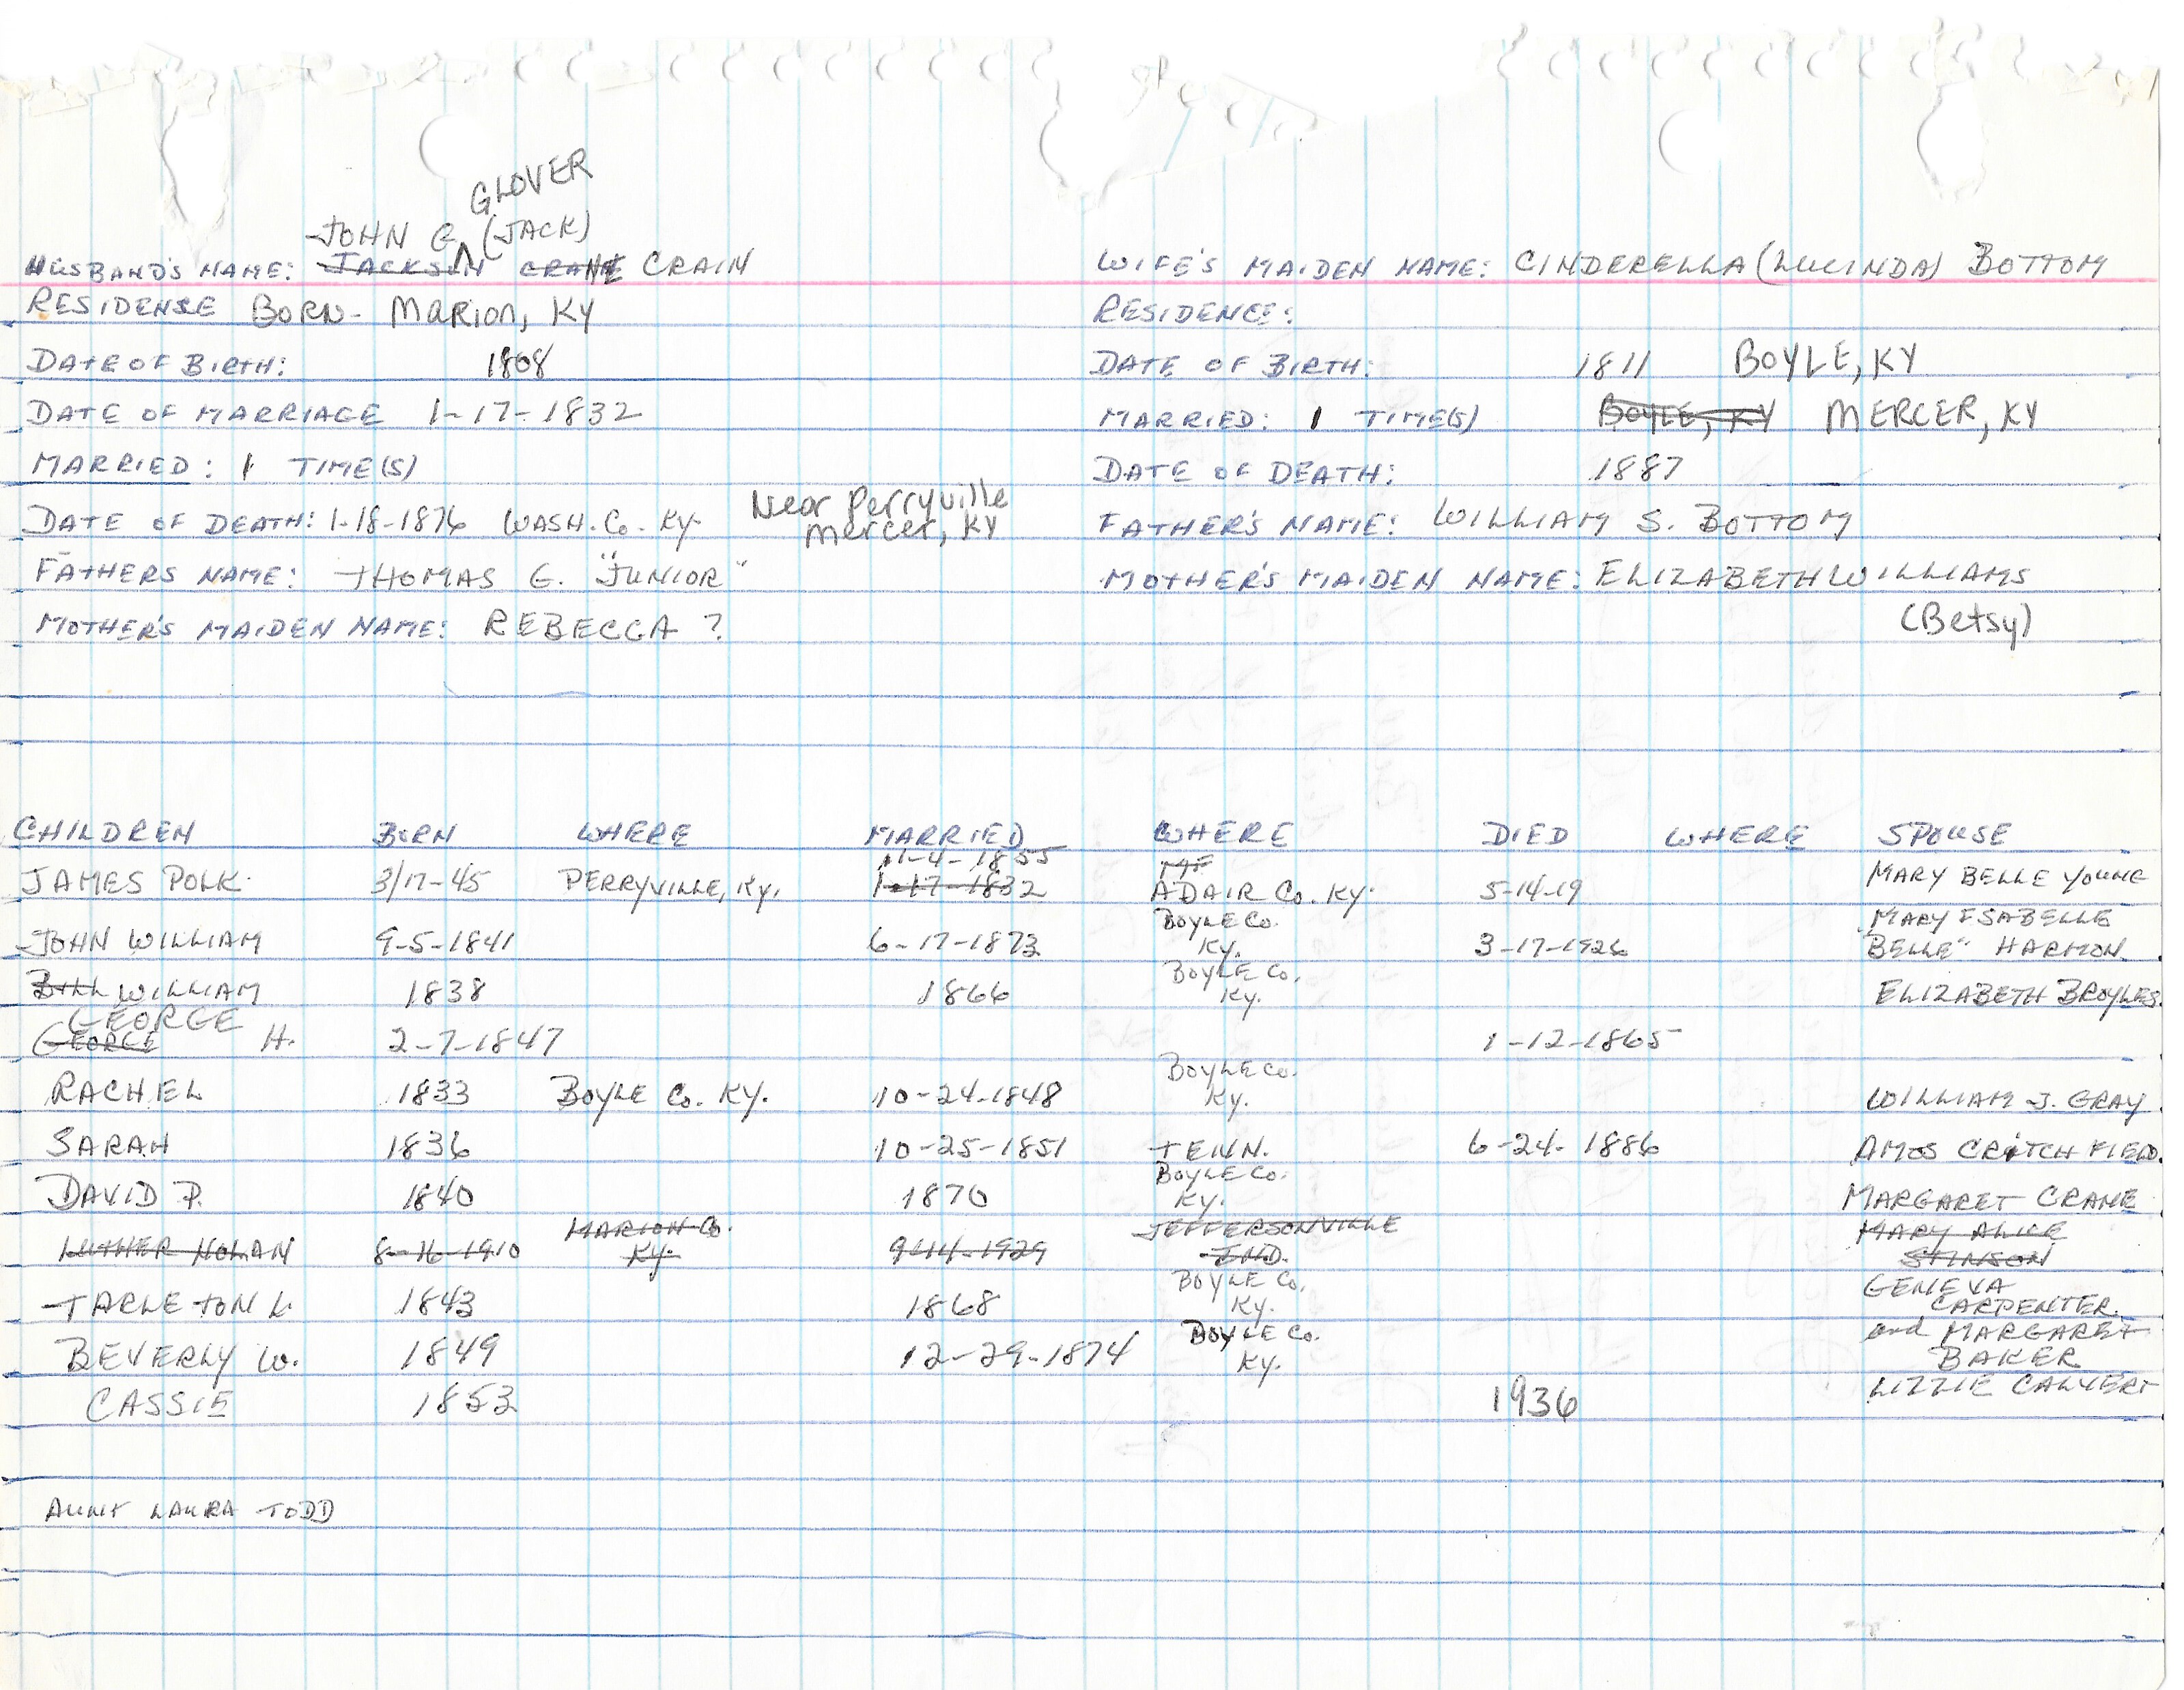 GLOVER
JOHN G. (JACK)
HUSBAND'S NAME: JACKSON CRANE CRAIN
RESIDENSE BORN- MARION, KY
DATE OF BIRTH: 1808
DATE OF MARRIAGE 1-17-1832
MARRIED: 1 TIME(S)
DATE OF DEATH: 1-18-1876 WASH. CO. KY. Near Perryville
Mercer, KY
FATHERS NAME: THOMAS G. "JUNIOR"
MOTHER'S MAIDEN NAME: REBECCA ?
WIFE'S MAIDEN NAME: CINDERELLA (LUCINDA) BOTTOM
RESIDENCE:
DATE OF BIRTH: 1811 BOYLE, KY
MARRIED: 1 TIME(S) BOYLE, KY MERCER, KY
DATE OF DEATH: 1887
FATHER'S NAME: WILLIAM S. BOTTOM
MOTHER'S MAIDEN NAME: ELIZABETH WILLIAMS
(Betsy)
CHILDREN BORN WHERE MARRIED WHERE DIED WHERE SPOUSE
11-4-1855
JAMES POLK 3/17-45 PERRYVILLE, KY. 1-17-1832 ADAIR CO. KY. 5-14-19 MARY BELLE YOUNG
BOYLE CO. MARY ISABELLE
JOHN WILLIAM 9-5-1841 6-17-1873 KY. 3-17-1926 BELLE" HARMON
BOYLE CO.
BILL WILLIAM 1838 1866 KY. ELIZABETH BROYLES
GEORGE
GEORGE H. 2-7-1847 1-12-1865
BOYLE CO.
RACHEL 1833 BOYLE CO. KY. 10-24-1848 KY. WILLIAM J. GRAY
SARAH 1836 10-25-1851 TENN. 6-24-1886 AMOS CRITCHFIELD
BOYLE CO.
DAVID P. 1840 1870 KY. MARGARET CRANE
MARION CO. JEFFERSONVILLE MARY ALICE
LUTHER NOLAN 8-16-1910 KY. 9-14-1929 IND. STINSON
BOYLE CO. GENEVA
TARLETON L. 1843 1868 KY. CARPENTER
BOYLE CO. and MARGARET
BEVERLY W. 1849 12-29-1874 KY. BAKER
CASSIE 1853 1936 LIZZIE CALVERT
AUNT LAURA TODD